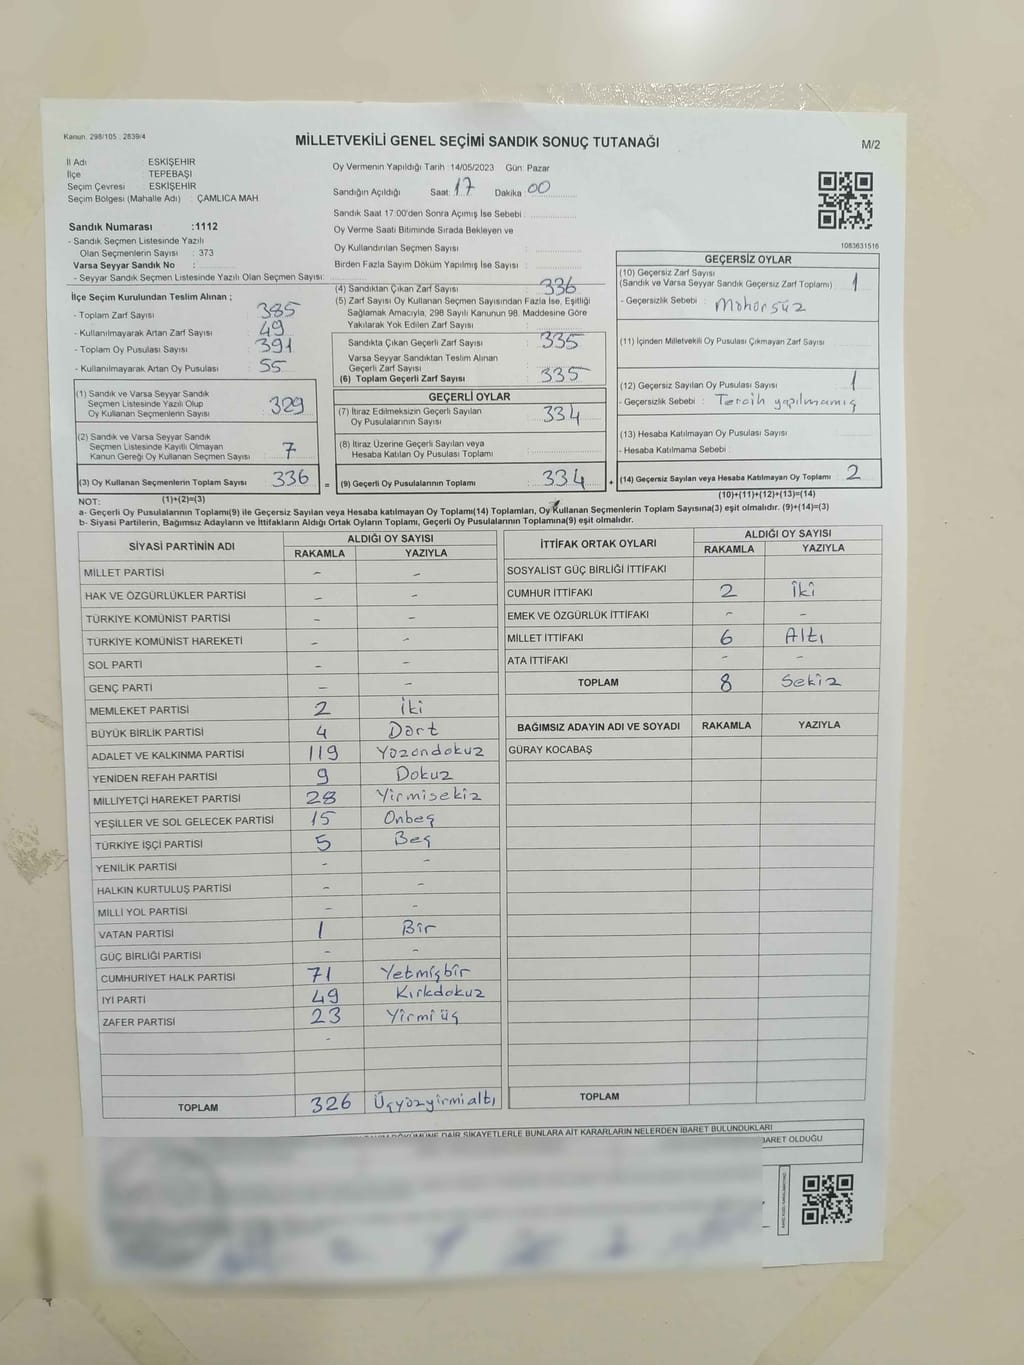 Kanun. 298/105 . 2839/4
MİLLETVEKİLİ GENEL SEÇİMİ SANDIK SONUÇ TUTANAĞI
M/2
İl Adı : ESKİŞEHİR
İlçe : TEPEBAŞI
Seçim Çevresi : ESKİŞEHİR
Seçim Bölgesi (Mahalle Adı) : ÇAMLICA MAH.
Oy Vermenin Yapıldığı Tarih :14/05/2023 Gün: Pazar
Sandığın Açıldığı Saat: 17 Dakika: 00
Sandık Saat 17:00'den Sonra Açımış İse Sebebi :
Oy Verme Saati Bitiminde Sırada Bekleyen ve
Oy Kullandırılan Seçmen Sayısı :
Birden Fazla Sayım Döküm Yapılmış İse Sayısı :
1083631516
Sandık Numarası :1112
- Sandık Seçmen Listesinde Yazılı
Olan Seçmenlerin Sayısı : 373
Varsa Seyyar Sandık No :
- Seyyar Sandık Seçmen Listesinde Yazılı Olan Seçmen Sayısı:
İlçe Seçim Kurulundan Teslim Alınan ;
- Toplam Zarf Sayısı : 385
- Kullanılmayarak Artan Zarf Sayısı : 49
- Toplam Oy Pusulası Sayısı : 391
- Kullanılmayarak Artan Oy Pusulası : 55
(1) Sandık ve Varsa Seyyar Sandık
Seçmen Listesinde Yazılı Olup
Oy Kullanan Seçmenlerin Sayısı : 329
(2) Sandık ve Varsa Seyyar Sandık
Seçmen Listesinde Kayıtlı Olmayan
Kanun Gereği Oy Kullanan Seçmen Sayısı : 7
(3) Oy Kullanan Seçmenlerin Toplam Sayısı : 336
(1)+(2)=(3)
(4) Sandıktan Çıkan Zarf Sayısı : 336
(5) Zarf Sayısı Oy Kullanan Seçmen Sayısından Fazla İse, Eşitliği
Sağlamak Amacıyla, 298 Sayılı Kanunun 98. Maddesine Göre
Yakılarak Yok Edilen Zarf Sayısı :
Sandıkta Çıkan Geçerli Zarf Sayısı : 335
Varsa Seyyar Sandıktan Teslim Alınan
Geçerli Zarf Sayısı :
(6) Toplam Geçerli Zarf Sayısı : 335
GEÇERLİ OYLAR
(7) İtiraz Edilmeksizin Geçerli Sayılan
Oy Pusulalarının Sayısı : 334
(8) İtiraz Üzerine Geçerli Sayılan veya
Hesaba Katılan Oy Pusulası Toplamı :
= (9) Geçerli Oy Pusulalarının Toplamı : 334 +
GEÇERSİZ OYLAR
(10) Geçersiz Zarf Sayısı
(Sandık ve Varsa Seyyar Sandık Geçersiz Zarf Toplamı) : 1
- Geçersizlik Sebebi : Mohorsüz
(11) İçinden Milletvekili Oy Pusulası Çıkmayan Zarf Sayısı :
(12) Geçersiz Sayılan Oy Pusulası Sayısı : 1
- Geçersizlik Sebebi : Tercih yapılmamış
(13) Hesaba Katılmayan Oy Pusulası Sayısı :
- Hesaba Katılmama Sebebi :
(14) Geçersiz Sayılan veya Hesaba Katılmayan Oy Toplamı : 2
(10)+(11)+(12)+(13)=(14)
NOT:
a- Geçerli Oy Pusulalarının Toplamı(9) ile Geçersiz Sayılan veya Hesaba katılmayan Oy Toplamı(14) Toplamları, Oy Kullanan Seçmenlerin Toplam Sayısına(3) eşit olmalıdır. (9)+(14)=(3)
b- Siyasi Partilerin, Bağımsız Adayların ve İttifakların Aldığı Ortak Oyların Toplamı, Geçerli Oy Pusulalarının Toplamına(9) eşit olmalıdır.
SİYASİ PARTİNİN ADI ALDIĞI OY SAYISI
RAKAMLA YAZIYLA
MİLLET PARTİSİ - -
HAK VE ÖZGÜRLÜKLER PARTİSİ - -
TÜRKİYE KOMÜNİST PARTİSİ - -
TÜRKİYE KOMÜNİST HAREKETİ - -
SOL PARTİ - -
GENÇ PARTİ - -
MEMLEKET PARTİSİ 2 İki
BÜYÜK BİRLİK PARTİSİ 4 Dört
ADALET VE KALKINMA PARTİSİ 119 Yüzondokuz
YENİDEN REFAH PARTİSİ 9 Dokuz
MİLLİYETÇİ HAREKET PARTİSİ 28 Yirmisekiz
YEŞİLLER VE SOL GELECEK PARTİSİ 15 Onbeş
TÜRKİYE İŞÇİ PARTİSİ 5 Beş
YENİLİK PARTİSİ - -
HALKIN KURTULUŞ PARTİSİ - -
MİLLİ YOL PARTİSİ - -
VATAN PARTİSİ 1 Bir
GÜÇ BİRLİĞİ PARTİSİ - -
CUMHURİYET HALK PARTİSİ 71 Yetmişbir
İYİ PARTİ 49 Kırkdokuz
ZAFER PARTİSİ 23 Yirmi üç
-
TOPLAM 326 Üçyüzyirmialtı
İTTİFAK ORTAK OYLARI ALDIĞI OY SAYISI
RAKAMLA YAZIYLA
SOSYALİST GÜÇ BİRLİĞİ İTTİFAKI
CUMHUR İTTİFAKI 2 İki
EMEK VE ÖZGÜRLÜK İTTİFAKI - -
MİLLET İTTİFAKI 6 Altı
ATA İTTİFAKI - -
TOPLAM 8 Sekiz
BAĞIMSIZ ADAYIN ADI VE SOYADI RAKAMLA YAZIYLA
GÜRAY KOCABAŞ
TOPLAM
DAİR ŞİKAYETLERLE BUNLARA AİT KARARLARIN NELERDEN İBARET BULUNDUKLARI
BARET OLDUĞU